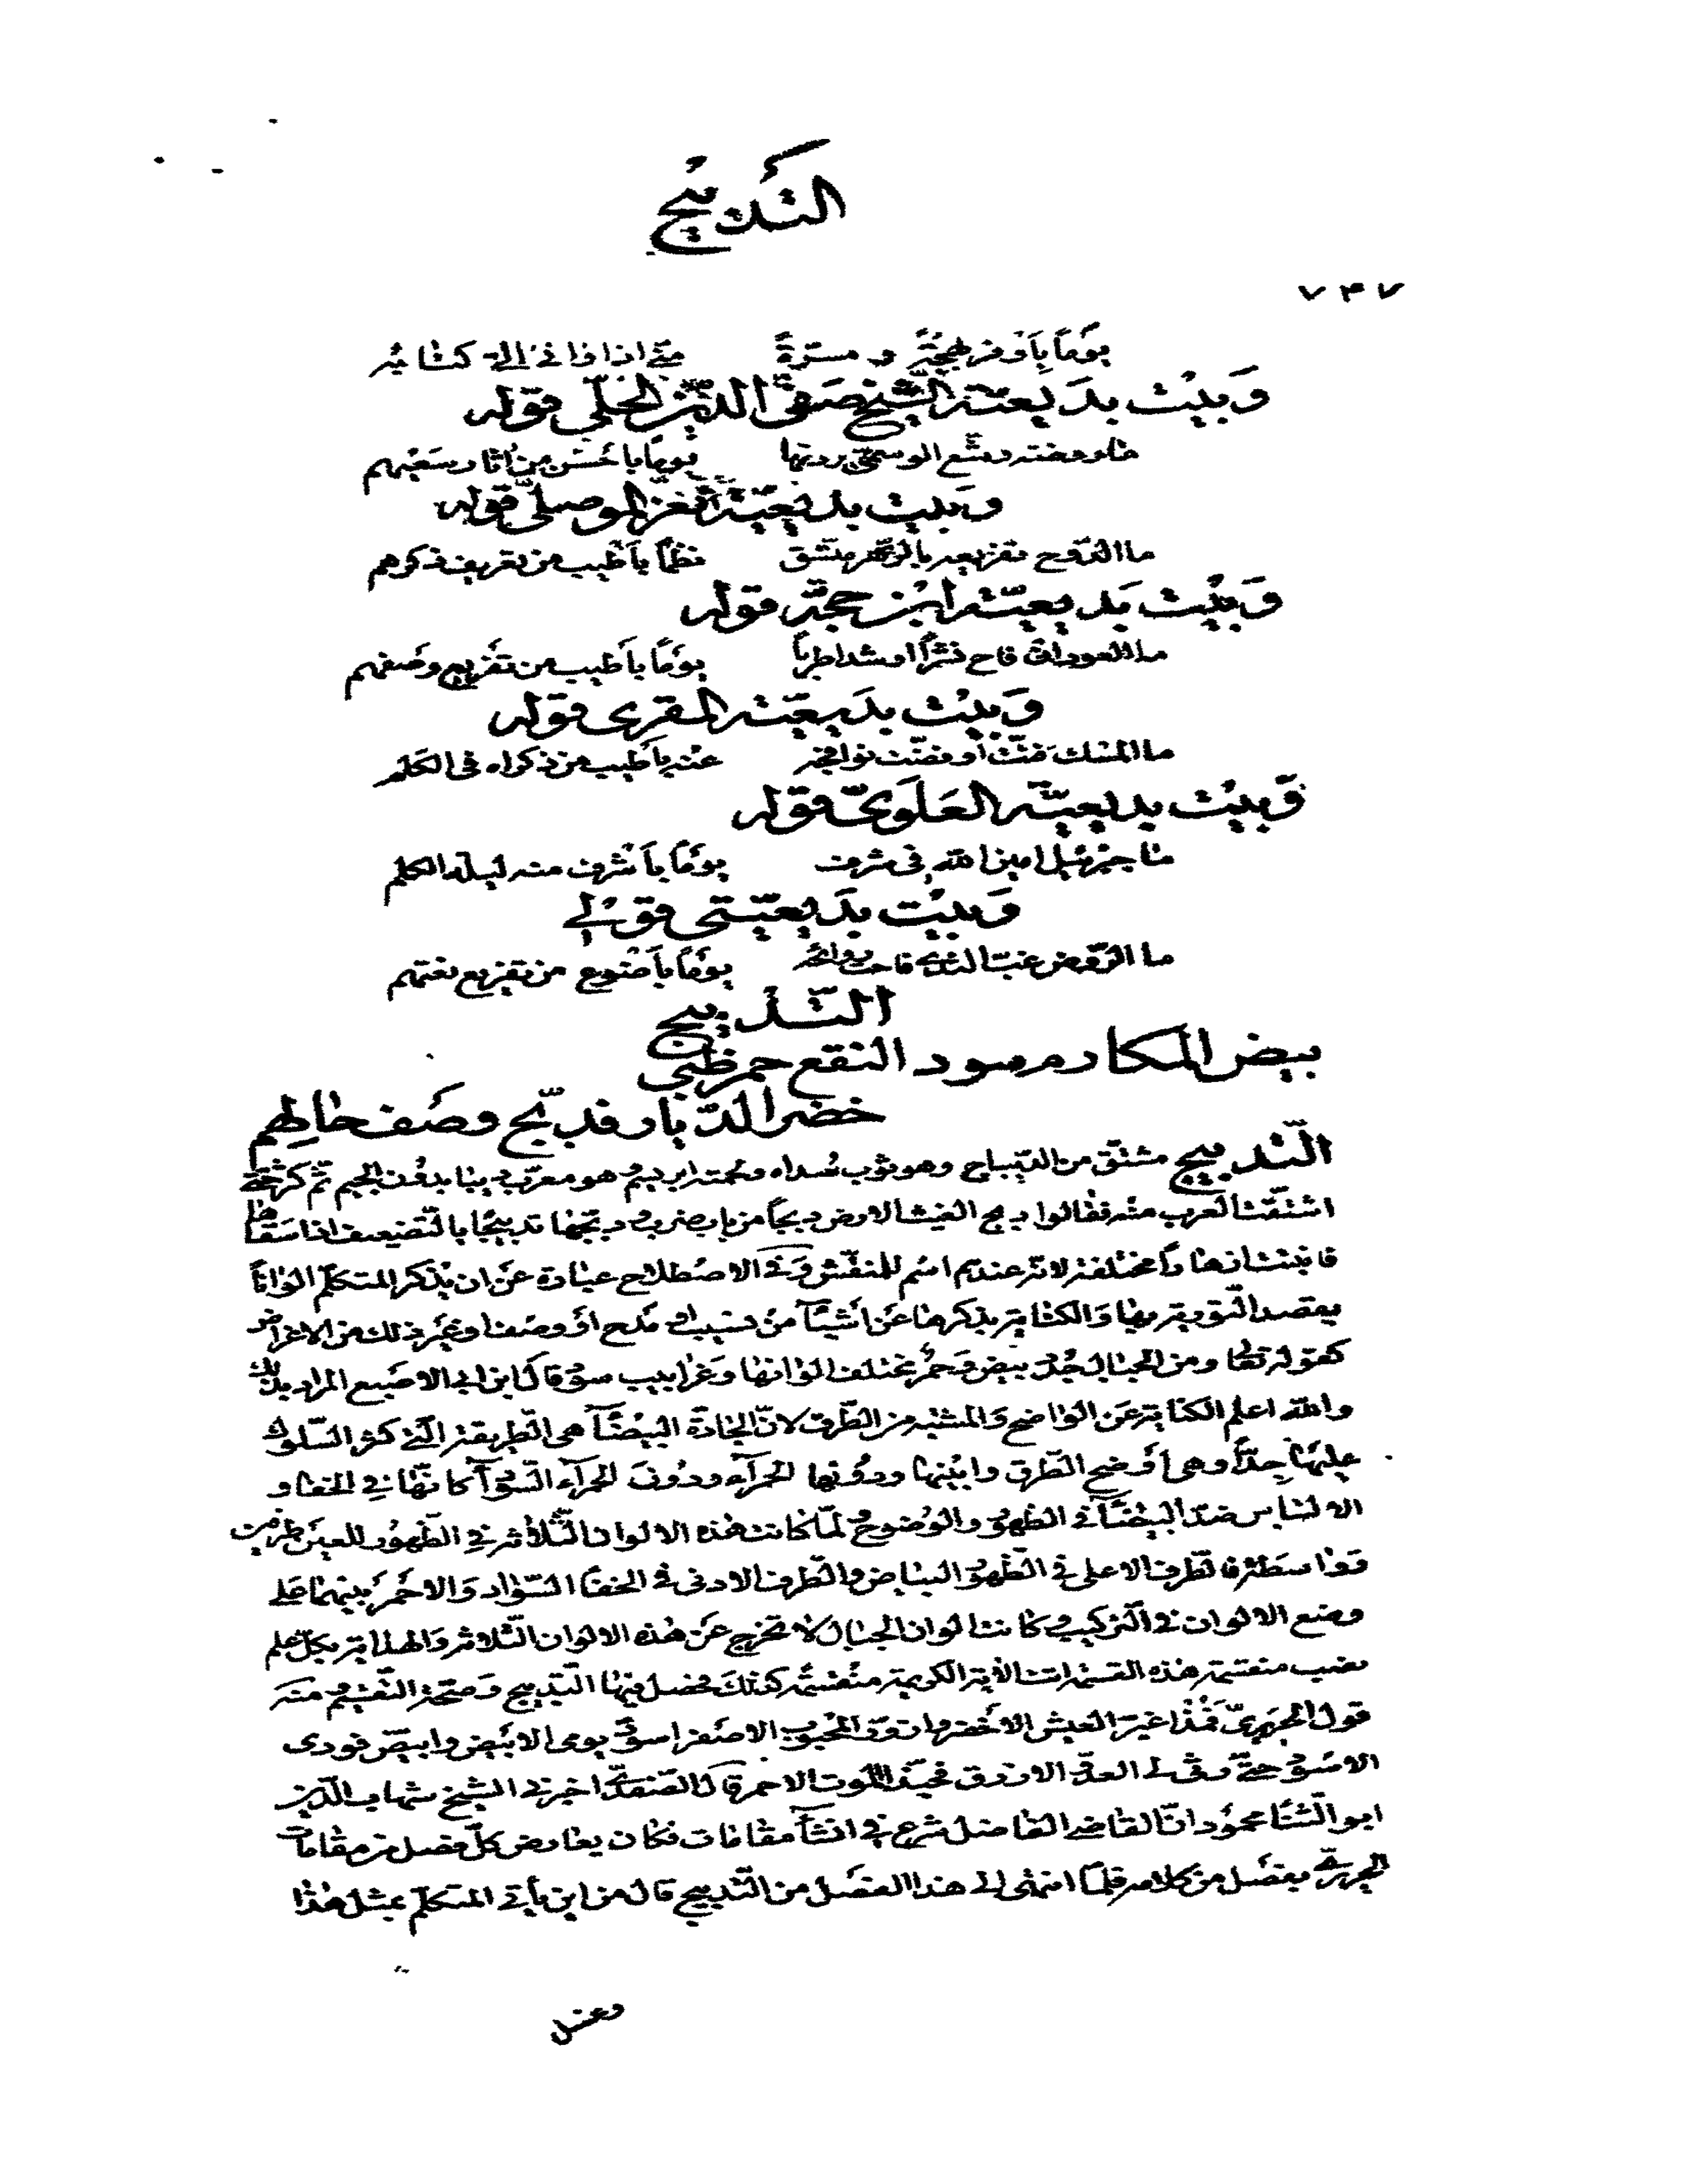 التدبيج
٧٤٧
يوماً بأوفر بهجة و مسرة منّي اذا وافى اليّ كتابه
وبيت بديعية الشيخ صفي الدين الحلّي قوله
ما روضة وشّع الوسميّ بردتها يوماً بأحسن من آثار سعيهم
وبيت بديعية العز الموصلي قوله
ما الدوح تفريعه بالزهر متّسق نظماً بأطيب من تعريف ذكرهم
وبيت بديعية ابن حجة قوله
ما العود ان فاح نشراً او شدا طرباً يوماً بأطيب من تفريع وصفهم
وبيت بديعية المقري قوله
ما المسك فتّت أو فضّت نوافجه عنه بأطيب من ذكراه في الكلم
وبيت بديعية العلوي قوله
ما جبرئيل امين الله في شرف يوماً بأشرف منه ليلة الكلم
وبيت بديعيتي قولي
ما الروض غبّ الندى فاحت روائحه يوماً بأضوع من تفريع نعتهم
التدبيج
بيض المكارم سود النقع حمر ظبى
خضر الديار فدبّج وصف حالهم
التدبيج مشتق من الديباج وهو ثوب سداه ولحمته ابريسم هو معرّب ديبا بدون الجيم ثم كثر حتى
اشتقت العرب منه فقالوا دبج الغيث الارض دبجاً من باب ضرب ودبّجها تدبيجاً بالتضعيف اذا سقاها
فانبتت ازهاراً مختلفة لانه عندهم اسم للمنقش وفي الاصطلاح عبارة عن ان يذكر المتكلم الواناً
يقصد التورية بها والكناية بذكرها عن أشياء من نسيب او مدح أو وصف او غير ذلك من الاغراض
كقوله تعالى ومن الجبال جدد بيض وحمر مختلف الوانها وغرابيب سود قال ابن ابي الاصبع المراد بذلك
والله اعلم الكناية عن الواضح والمشتبه من الطرق لانّ الجادة البيضاء هي الطريقة التي كثر السلوك
عليها جدّاً وهي أوضح الطرق وابينها ودونها الحمراء ودون الحمراء السوداء كانها في الخفاء و
الالتباس ضدّ البيضاء في الظهور والوضوح ولمّا كانت هذه الالوان الثلاثة في الظهور للعين طرفين
وواسطة فالطرف الاعلى في الظهور البياض والطرف الادنى في الخفاء السواد والاحمر بينهما على
وضع الالوان في التركيب وكانت الوان الجبال لا تخرج عن هذه الالوان الثلاثة والهداية بكلّ علم
نصب منقسمة هذه القسمة اتت الآية الكريمة منقسمة كذلك فحصل فيها التدبيج وصحة التقسيم ومنه
قول الحريريّ فمذ اغبرّ العيش الأخضر وازورّ المحبوب الاصفر اسودّ يومي الابيض وابيضّ فودي
الاسود حتّى رثى لي العدوّ الازرق فحبّذا الموت الاحمر قال الصفدي اخبرني الشيخ شهاب الدين
ابو الثناء محمود انّ القاضي الفاضل شرع في انشاء مقامات فكان يعارض كلّ فصل من مقامات
الحريريّ بفصل من كلامه فلما انتهى الى هذا الفصل من التدبيج قال من اين يأتي المتكلم بمثل هذا